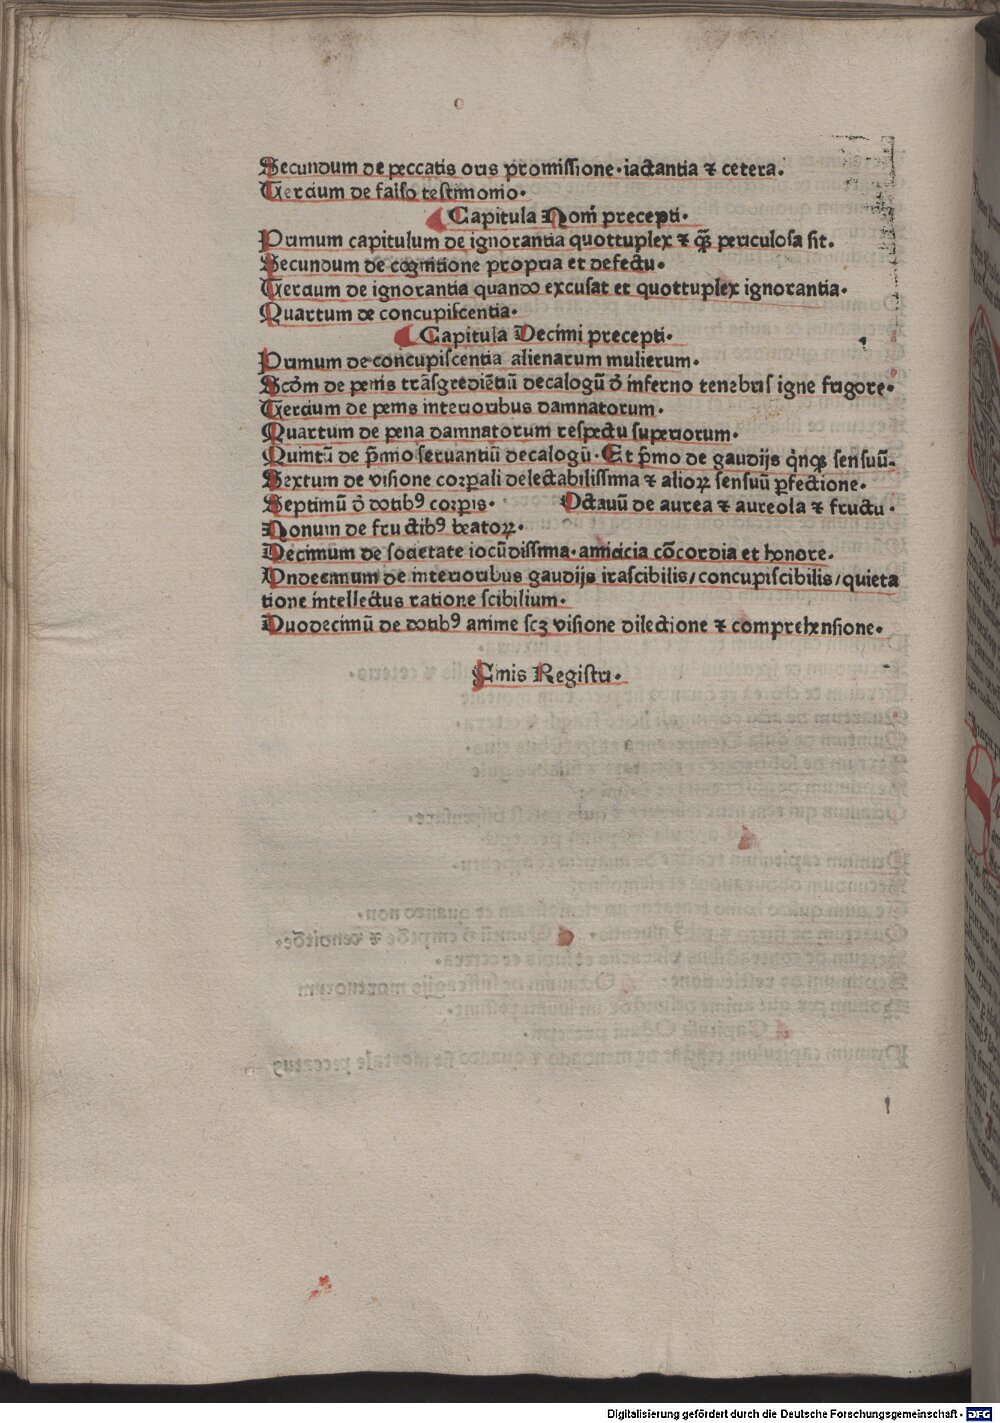 Secundum de peccatis oris promissione· iactantia ⁊ cetera.
Tercium de falso testimonio·
Capitula Noni precepti·
Primum capitulum de ignorantia quottuplex ⁊ qꝫ̃ periculosa sit.
Secundum de cognitione propria et defectu·
Tercium de ignorantia quando excusat et quottuplex ignorantia·
Quartum de concupiscentia·
Capitula Decimi precepti·
Primum de concupiscentia alienarum mulierum·
Scd̃m de penis trãsgrediẽtiũ decalogũ d̾ inferno tenebris igne frigore·
Tercium de penis interioribus damnatorum·
Quartum de pena damnatorum respectu superiorum·
Quintũ de p̃mio seruantiũ decalogũ· Et p̃mo de gaudijs q̇nqꝫ sensuũ·
Sextum de visione corporali delectabilissima ⁊ alioꝝ sensuũ ꝑfectione·
Septimũ d̾ dotibꝰ corporis· Octauũ de aurea ⁊ aureola ⁊ fructu·
Nonum de fructibꝰ beatoꝝ·
Decimum de societate iocũdissima· amicicia cõcordia et honore·
Undecimum de interioribus gaudijs irascibilis/concupiscibilis/quieta
tione intellectus ratione scibilium·
Duodecimũ de dotibꝰ anime scꝫ visione dilectione ⁊ comprehensione·
Finis Registri·
Digitalisierung gefördert durch die Deutsche Forschungsgemeinschaft - DFG